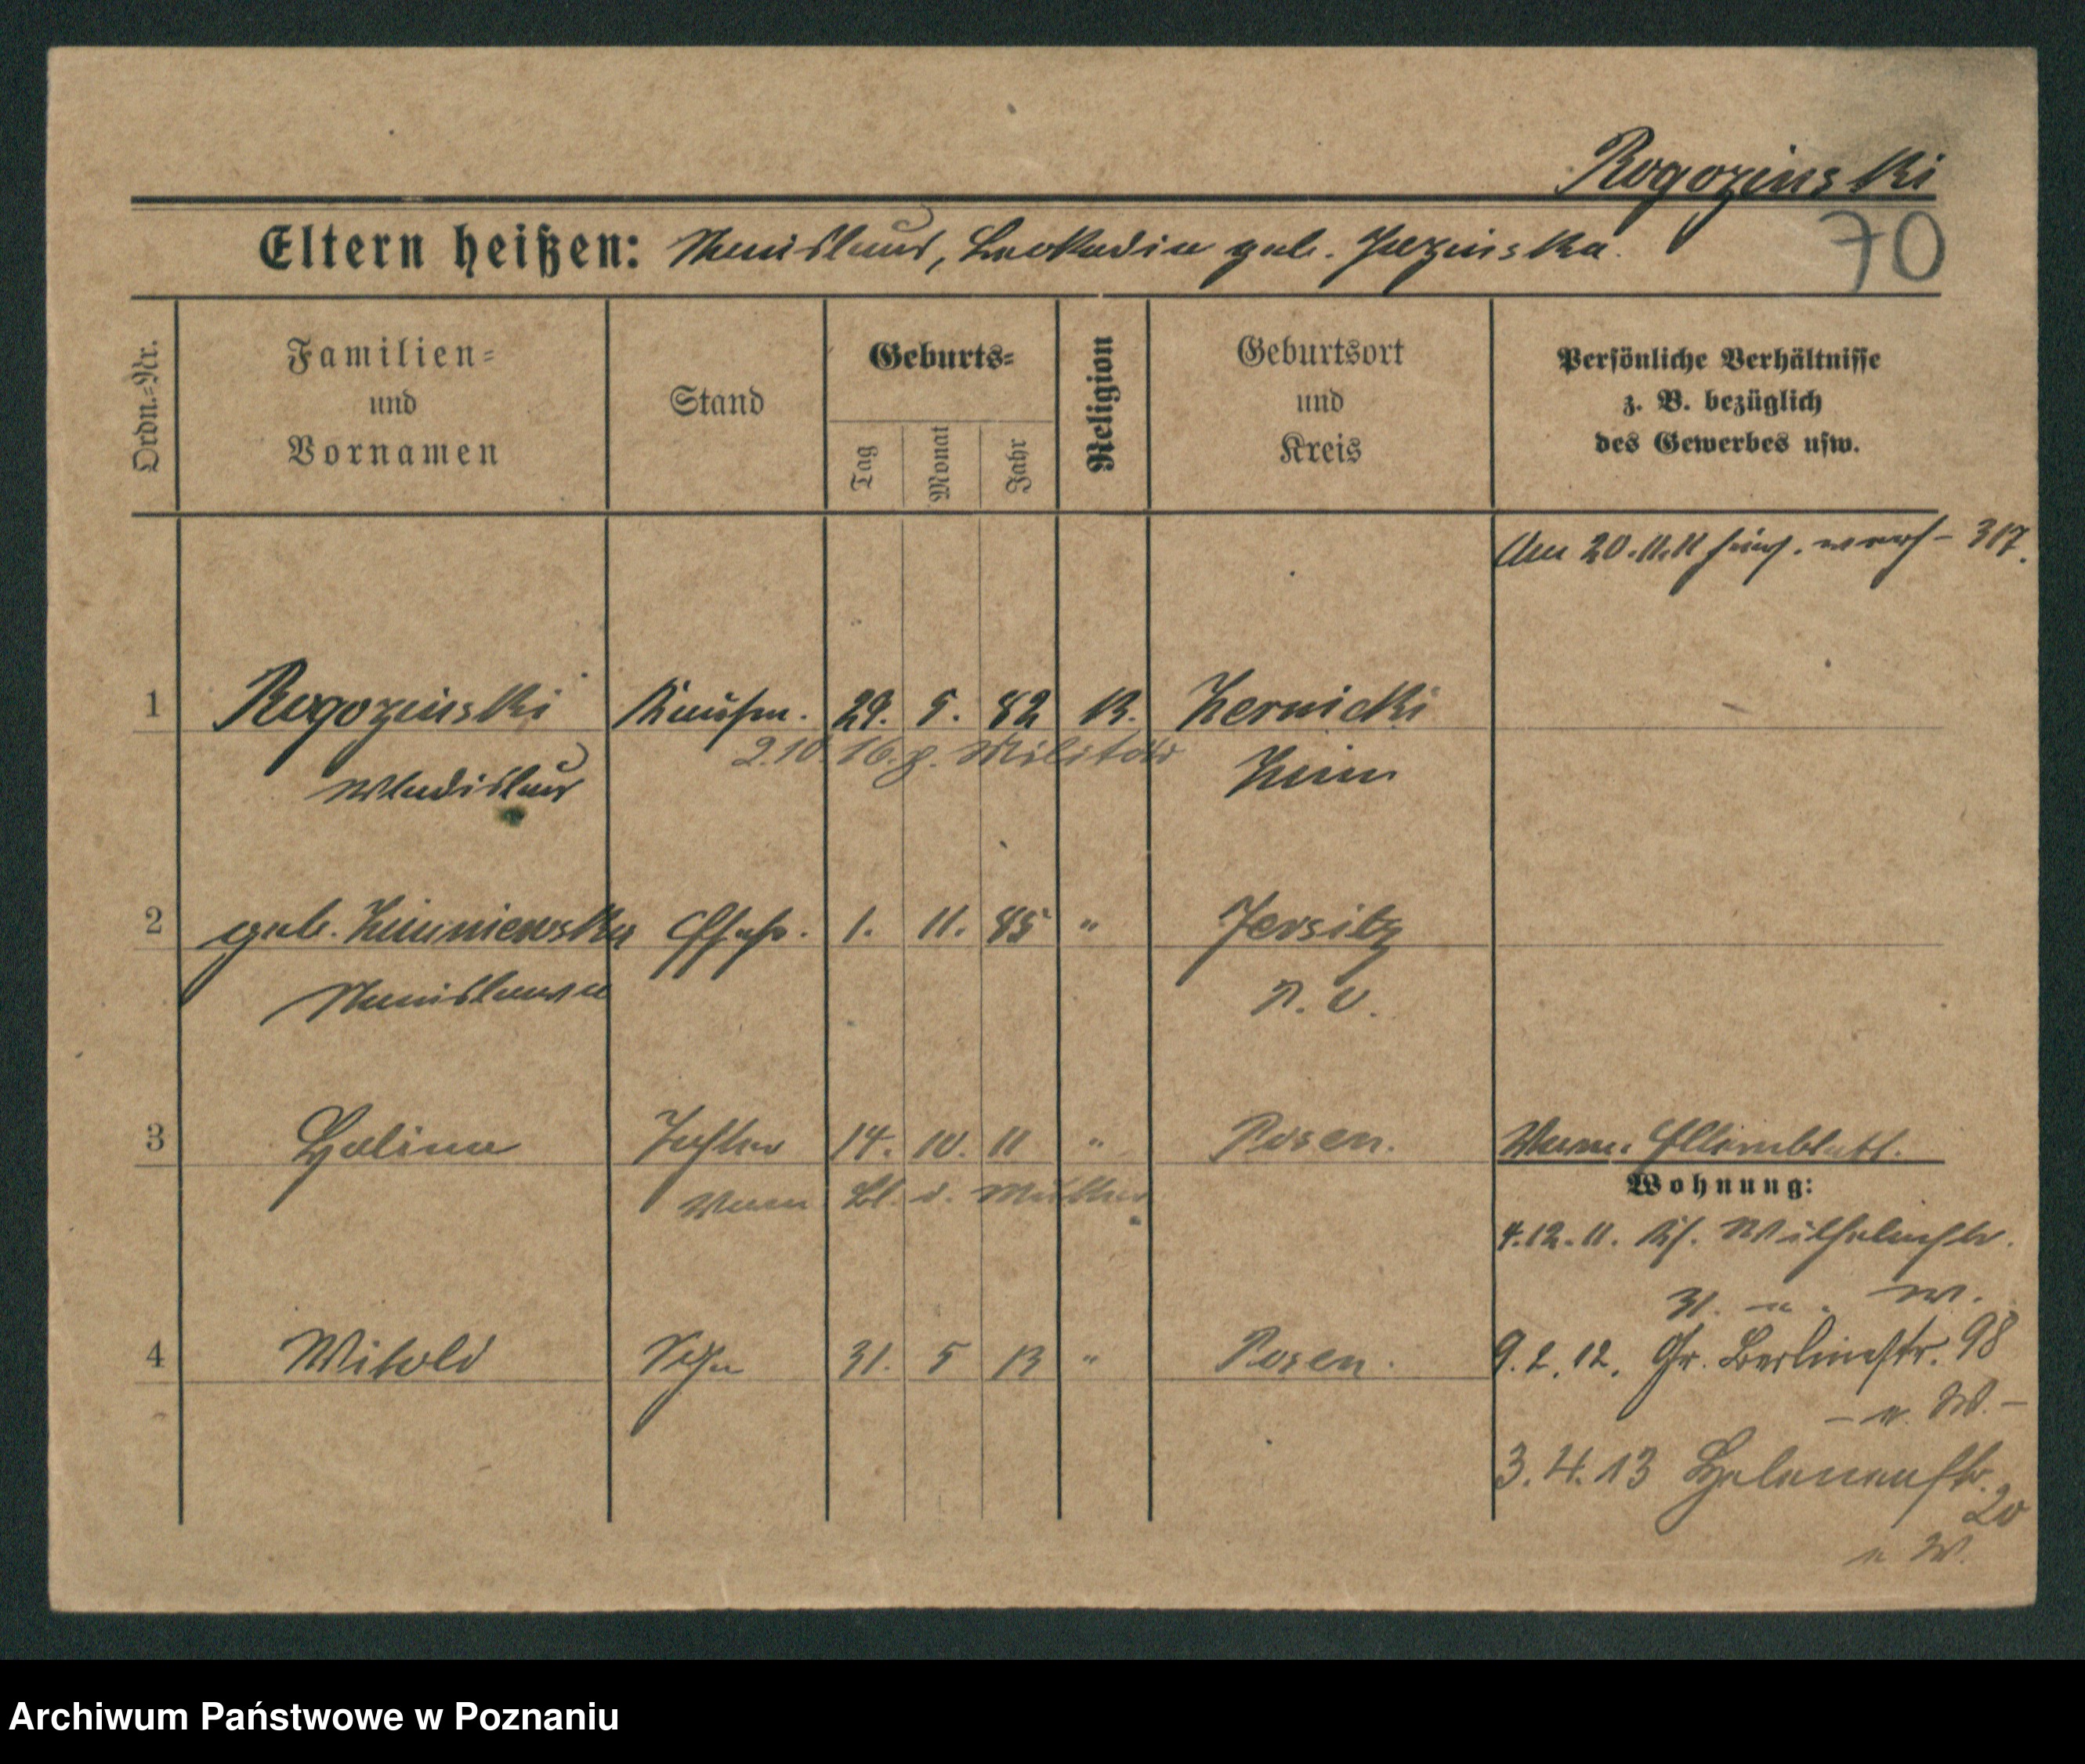 Rogozinski
70
Eltern heißen: Stanislaus, Leokadia geb. Jezinska.
Ordn.=Nr.
Familien=
und
Vornamen
Stand
Geburts=
Tag
Monat
Jahr
Religion
Geburtsort
und
Kreis
Persönliche Verhältnisse
z. B. bezüglich
des Gewerbes usw.
Am 20.11.11 – 317.
1 Rogozinski Kaufm. 29. 5. 82 K.
2.10.16. z. Militär
Wladislaus
2 geb. Ehefr. 1. 11. 85 " Jersitz
Stanislawa P. O.
3 Halina Tochter 14. 10. 11 " Posen.
Bl. d. Mutter
Wohnung:
4.12.11. Wilhelmstr.
31. u. W.
4 Witold Sohn 31. 5 13 " Posen.
9.2.12. Gr. Berlinerstr. 98
– u. W. –
3.4.13 Helenenstr.
20
u W.
Archiwum Państwowe w Poznaniu